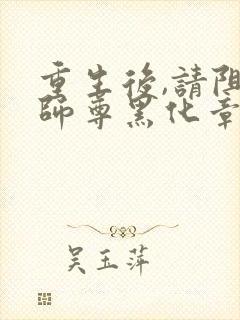 重生後,請阻
師尊黑化章
吴玉萍